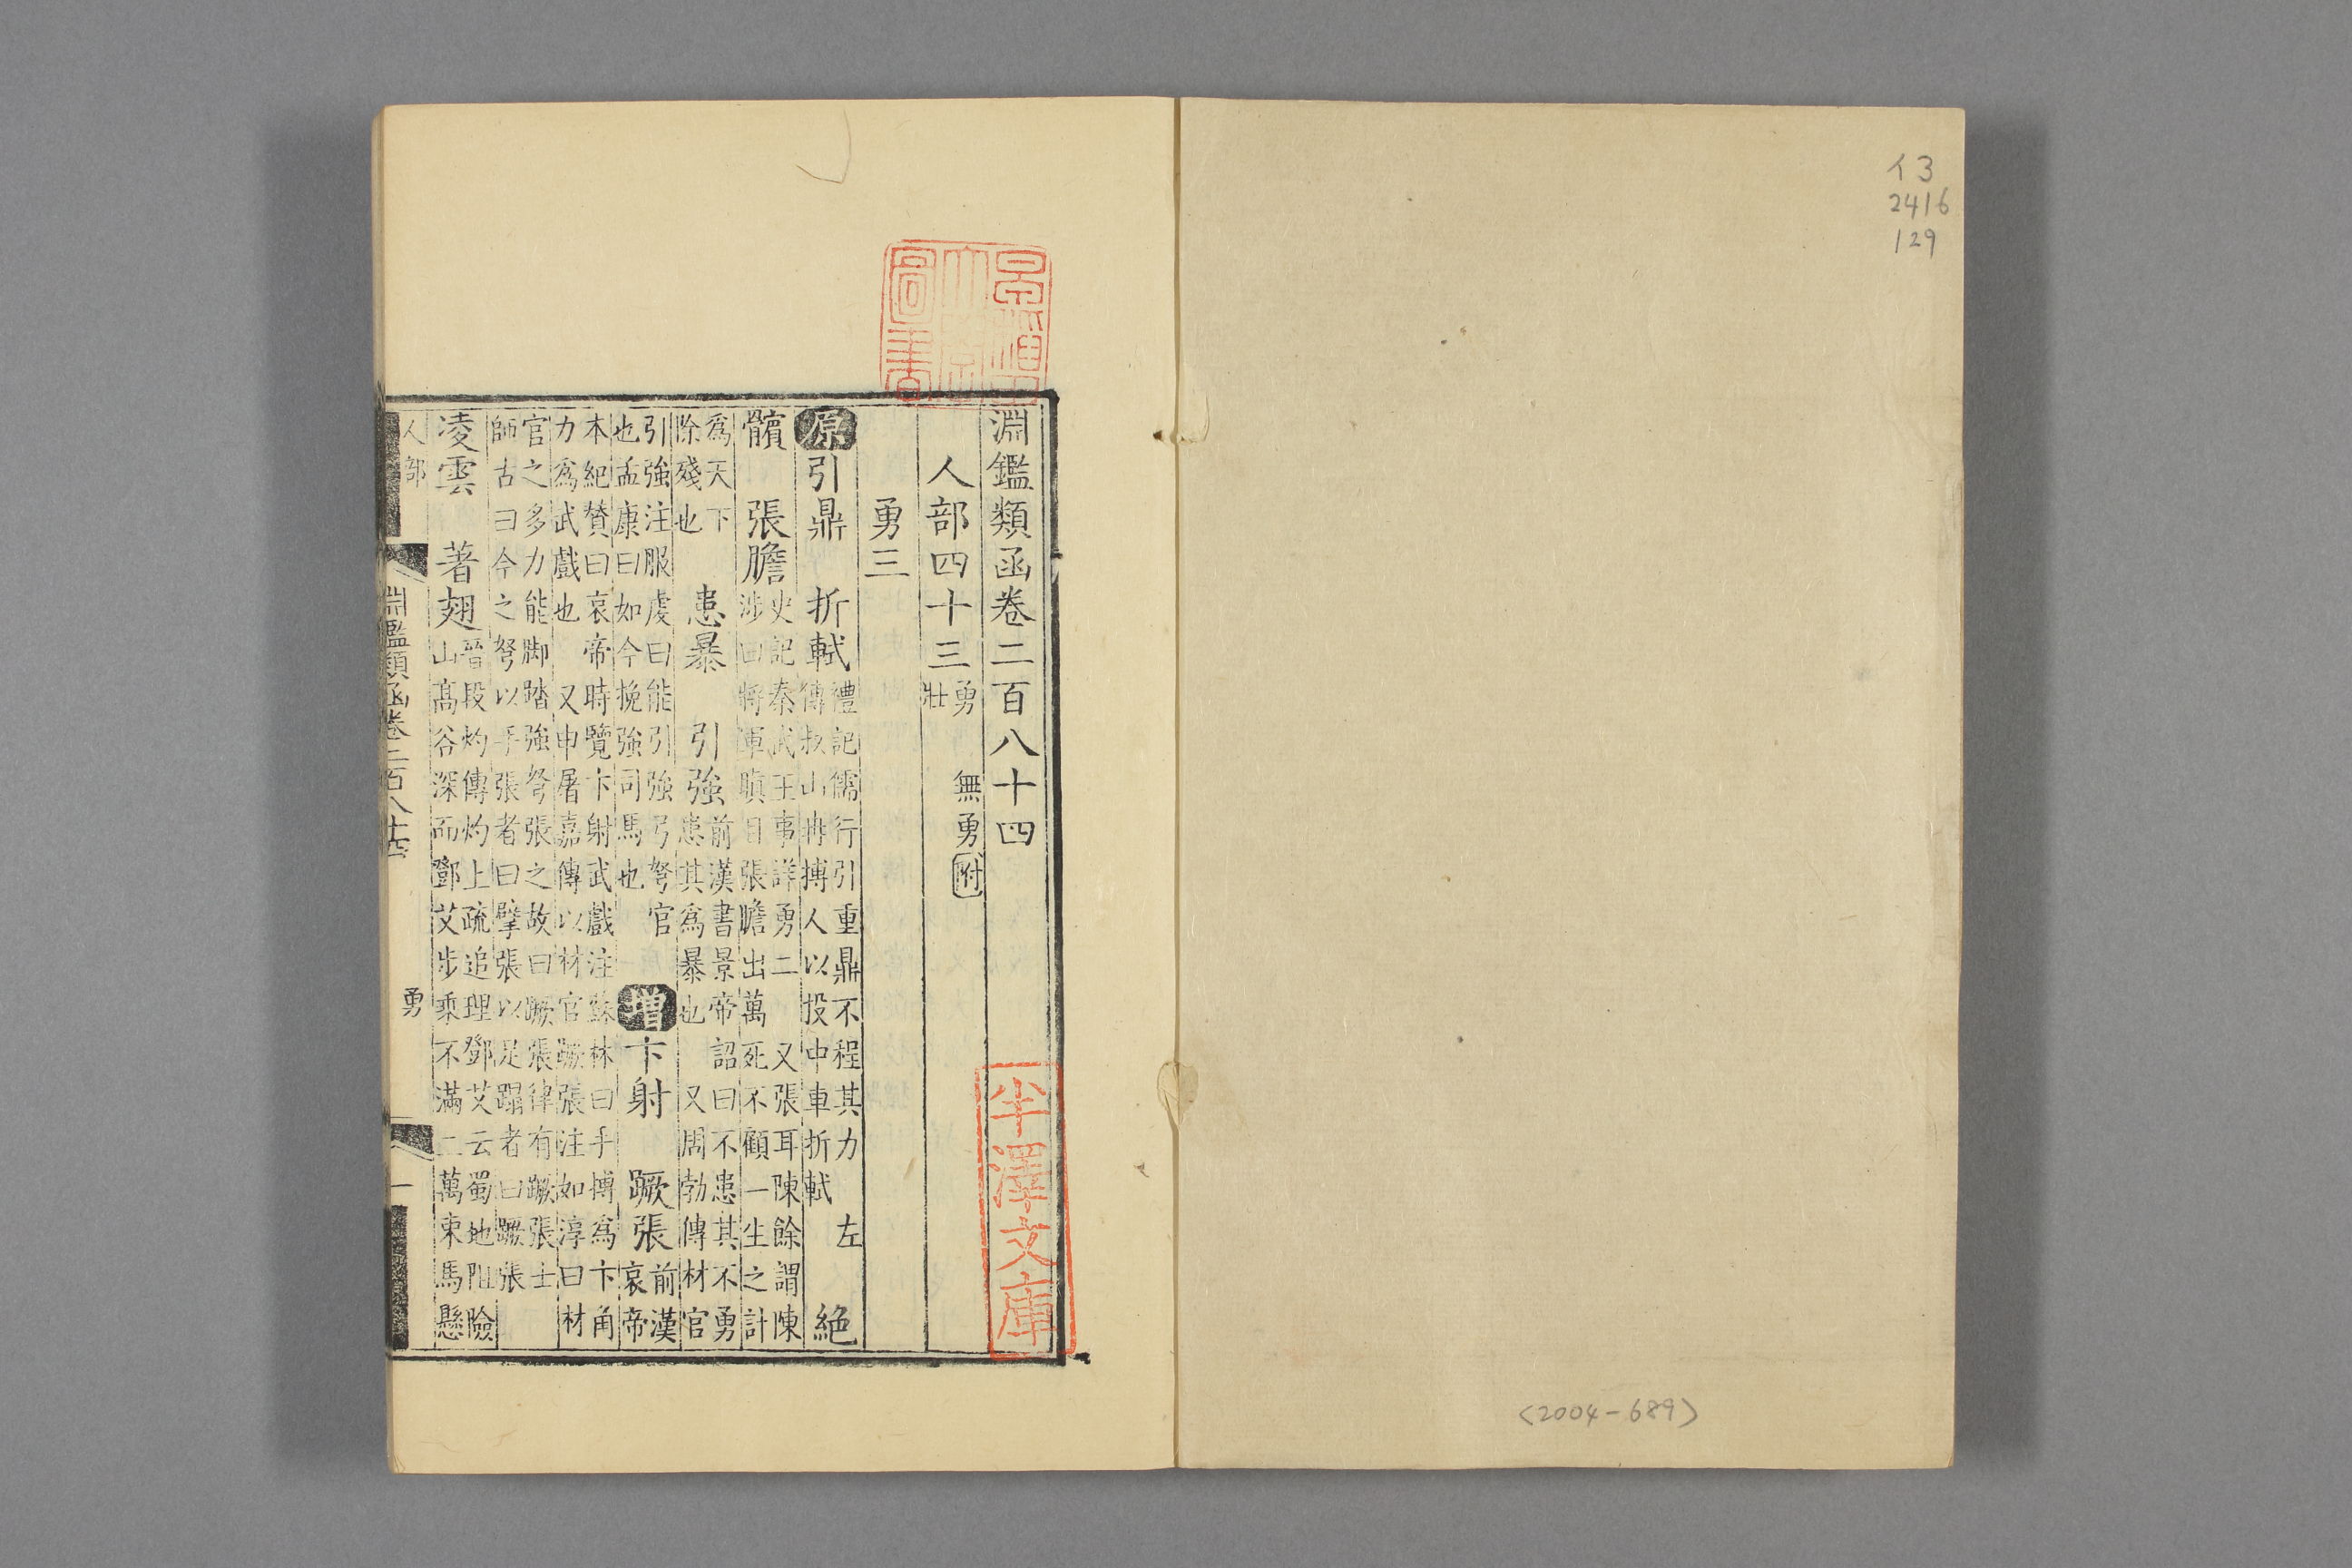 イ3
2416
129
(2004-689)
圖書
半澤文庫
淵鑑類函卷二百八十四
人部四十三 勇 無勇附
壯
勇三
原 引鼎 折軾 禮記儒行引重鼎不程其力 左
傳叔山冉搏人以投中車折軾 絶
髕 張膽 史記秦武王事詳勇二 又張耳陳餘謂陳
涉曰將軍瞋目張膽出萬死不顧一生之計
爲天下
除殘也 患暴 引強 前漢書景帝詔曰不患其不勇
患其爲暴也 又周勃傳材官
引強注服虔曰能引強弓弩官
也孟康曰如今挽強司馬也 增 卞射 蹶張 前漢
哀帝
本紀贊曰哀帝時覽卞射武戲注蘇林曰手搏爲卞角
力爲武戲也 又申屠嘉傳以材官蹶張注如淳曰材
官之多力能脚踏強弩張之故曰蹶張律有蹶張士
師古曰今之弩以手張者曰擘張以足蹋者曰蹶張
凌雲 著翅 晉段灼傳灼上疏追理鄧艾云蜀地阻險
山高谷深而鄧艾步乘不滿二萬束馬懸
人部 淵鑑類函卷二百八十四 勇 一